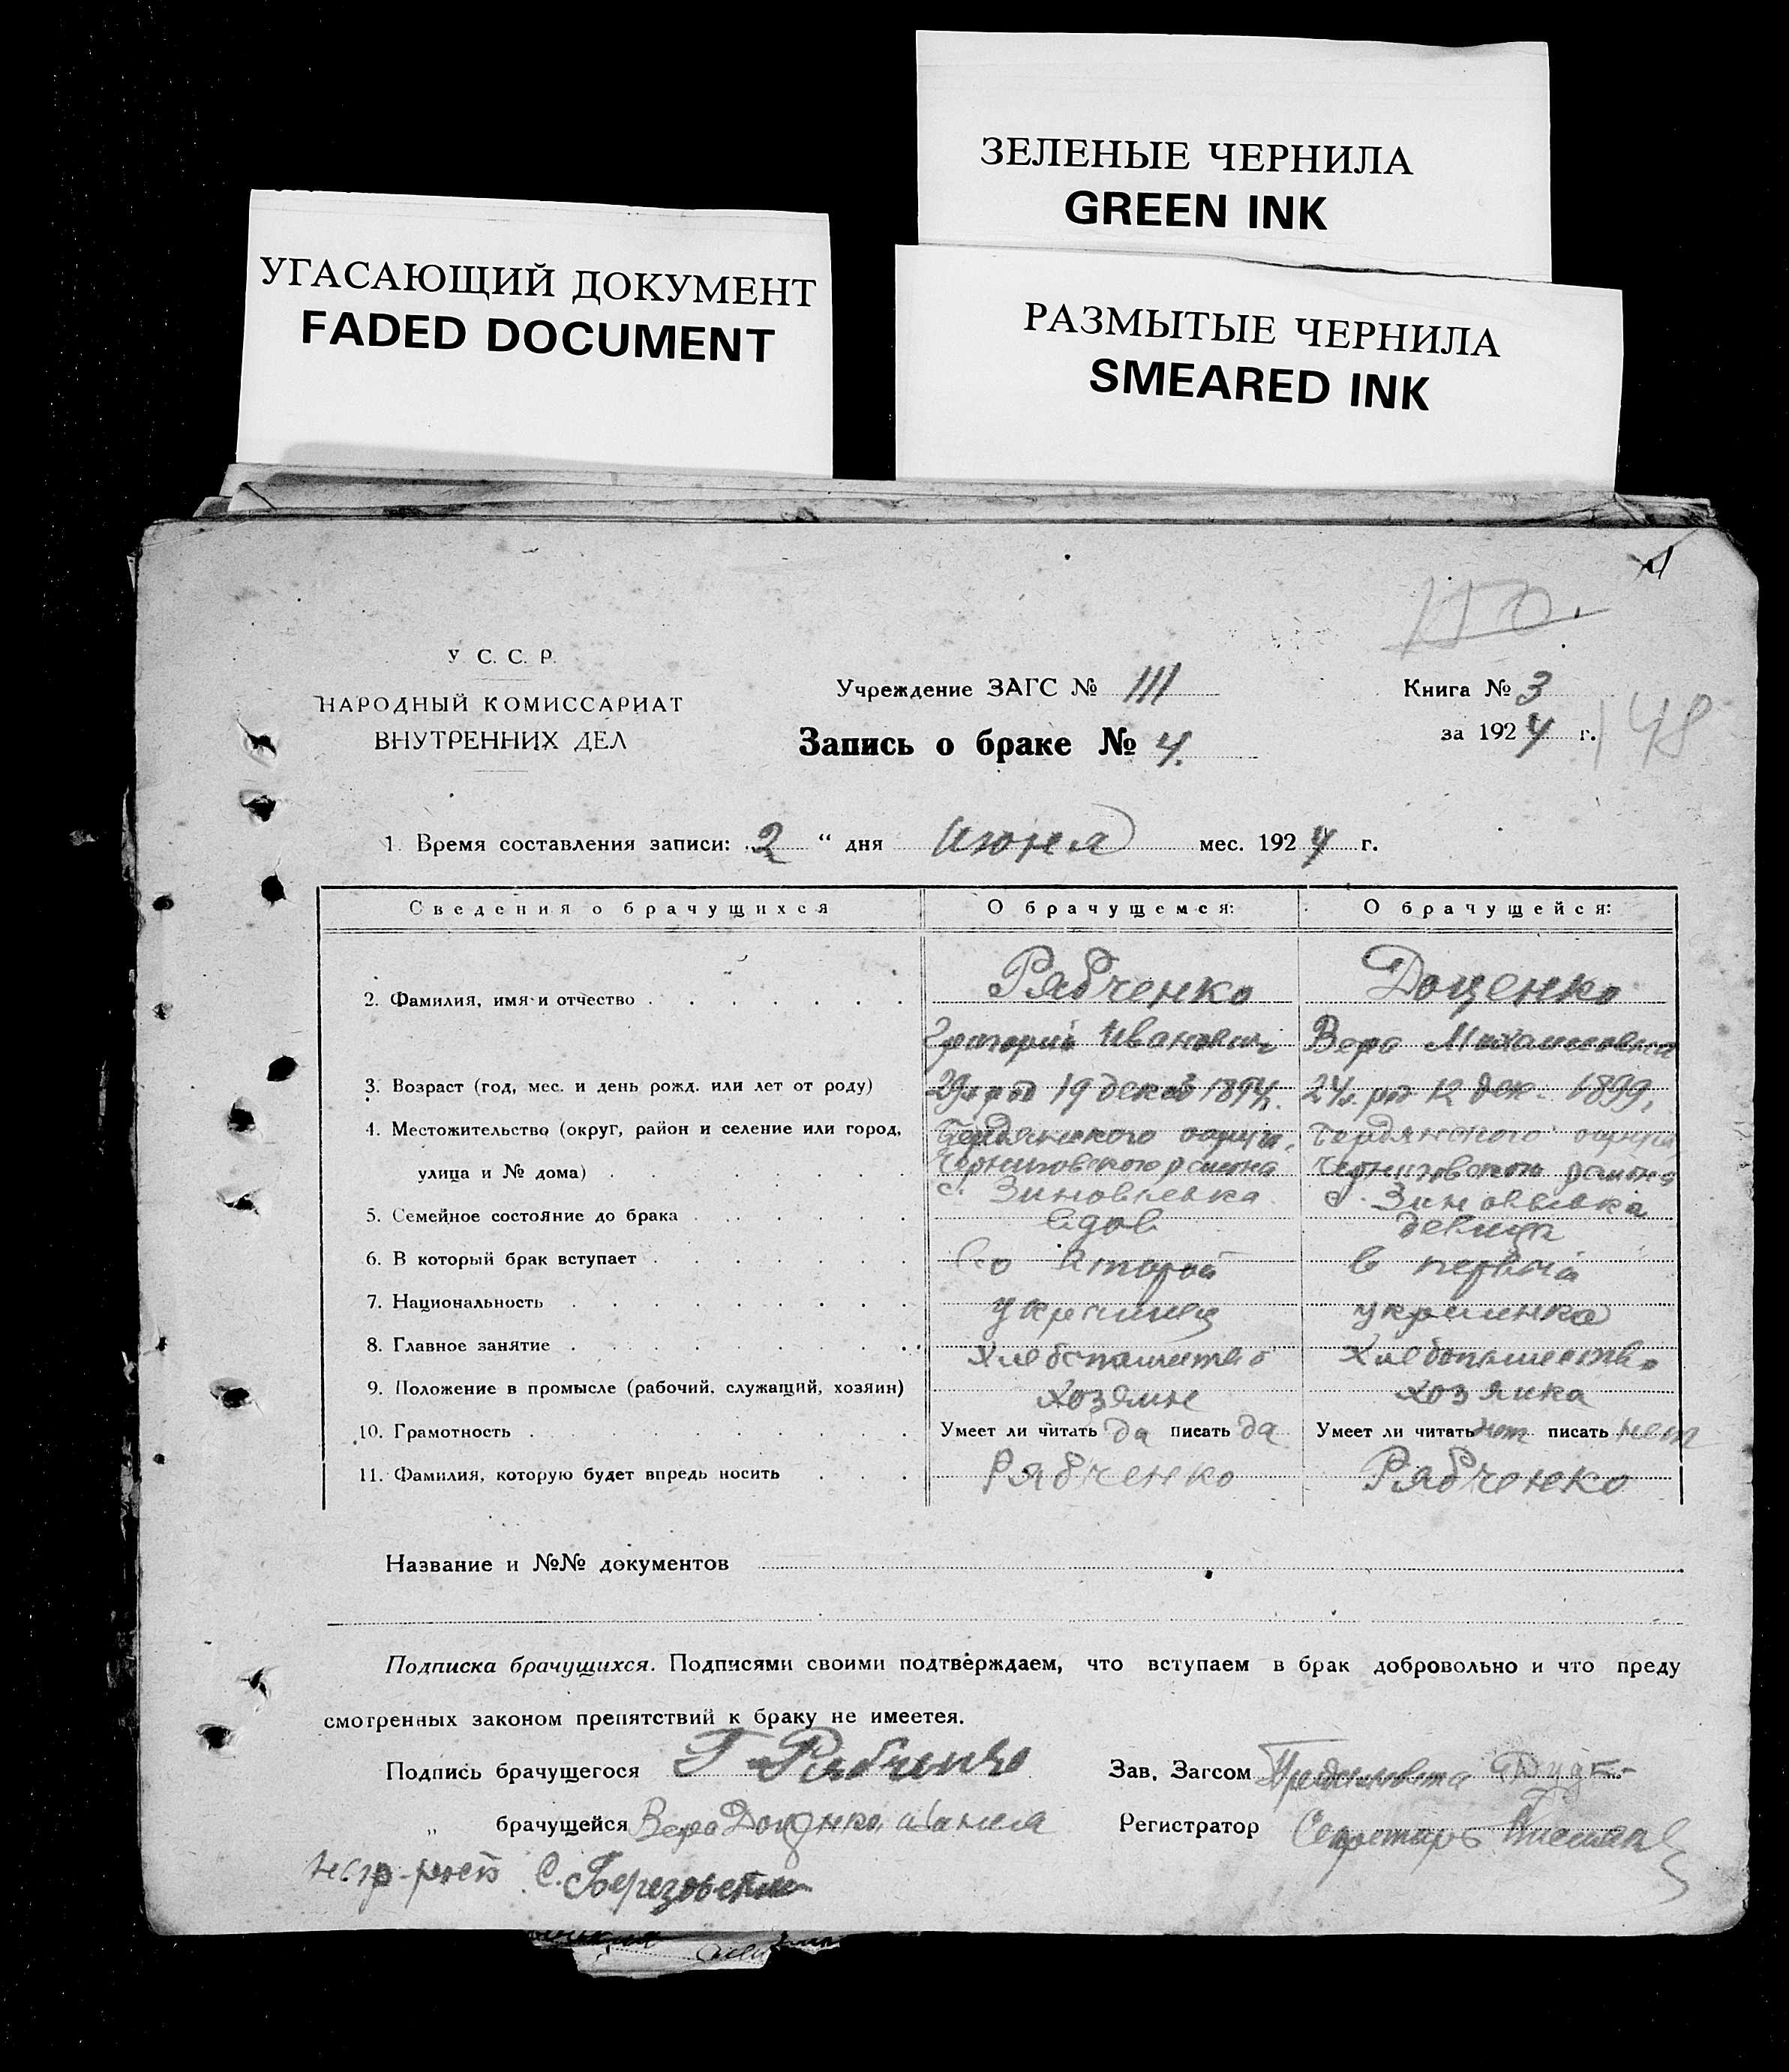 ЗЕЛЕНЫЕ ЧЕРНИЛА
GREEN INK
УГАСАЮЩИЙ ДОКУМЕНТ
FADED DOCUMENT
РАЗМЫТЫЕ ЧЕРНИЛА
SMEARED INK
150.
У. С. С. Р.
НАРОДНЫЙ КОМИССАРИАТ
ВНУТРЕННИХ ДЕЛ
Учреждение ЗАГС № 111
Запись о браке № 4.
Книга № 3
за 1924 г.
148
1. Время составления записи: 2 “ дня Июня мес. 1924 г.
Сведения о брачущихся О брачущемся: О брачущейся:
2. Фамилия, имя и отчество Рябченко Доценко
Григорий Иванович Вера Михайловна
3. Возраст (год, мес. и день рожд. или лет от роду) 29 19 1894 24 12 дек. 1899
4. Местожительство (округ, район и селение или город, Бердянского округа, Бердянского округа
улица и № дома) Черниговского района Черниговского района
с. Зиновьевка с. Зиновьевка
5. Семейное состояние до брака вдов девица
6. В который брак вступает во второй в первый
7. Национальность украинец украинка
8. Главное занятие хлебопашество хлебопашество
9. Положение в промысле (рабочий, служащий, хозяин) хозяин хозяйка
10. Грамотность Умеет ли читать да писать да Умеет ли читать нет писать нет
11. Фамилия, которую будет впредь носить Рябченко Рябченко
Название и №№ документов
Подписка брачущихся. Подписями своими подтверждаем, что вступаем в брак добровольно и что преду
смотренных законом препятствий к браку не имеетея.
Подпись брачущегося Г Рябченко Зав. Загсом
„ брачущейся Вера Доценко Регистратор Секретарь
С.